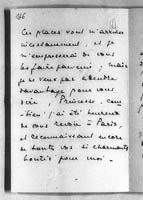 166
Ces places vont m'arriver
incessamment, et je
m'empresserai de vous
les faire parvenir, mais
je ne veux pas attendre
davantage pour vous
dire, Princesse, com-
bien j'ai été heureux
de vous revoir à Paris
et reconnaissant encore
de toutes vos si charmantes
bontés pour moi.